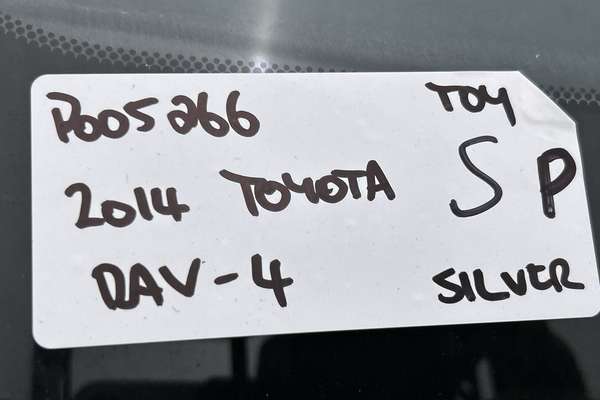 P005266 TOY
2014 TOYOTA S P
RAV-4 SILVER